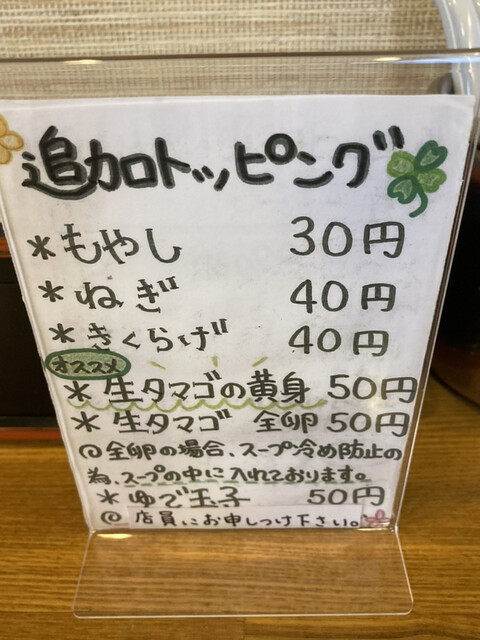 追加トッピング
*もやし 30円
*ねぎ 40円
*きくらげ 40円
オススメ
*生タマゴの黄身 50円
*生タマゴ 全卵 50円
◎全卵の場合、スープ冷め防止の
為、スープの中に入れております。
*ゆで玉子 50円
◎店員にお申しつけ下さい。